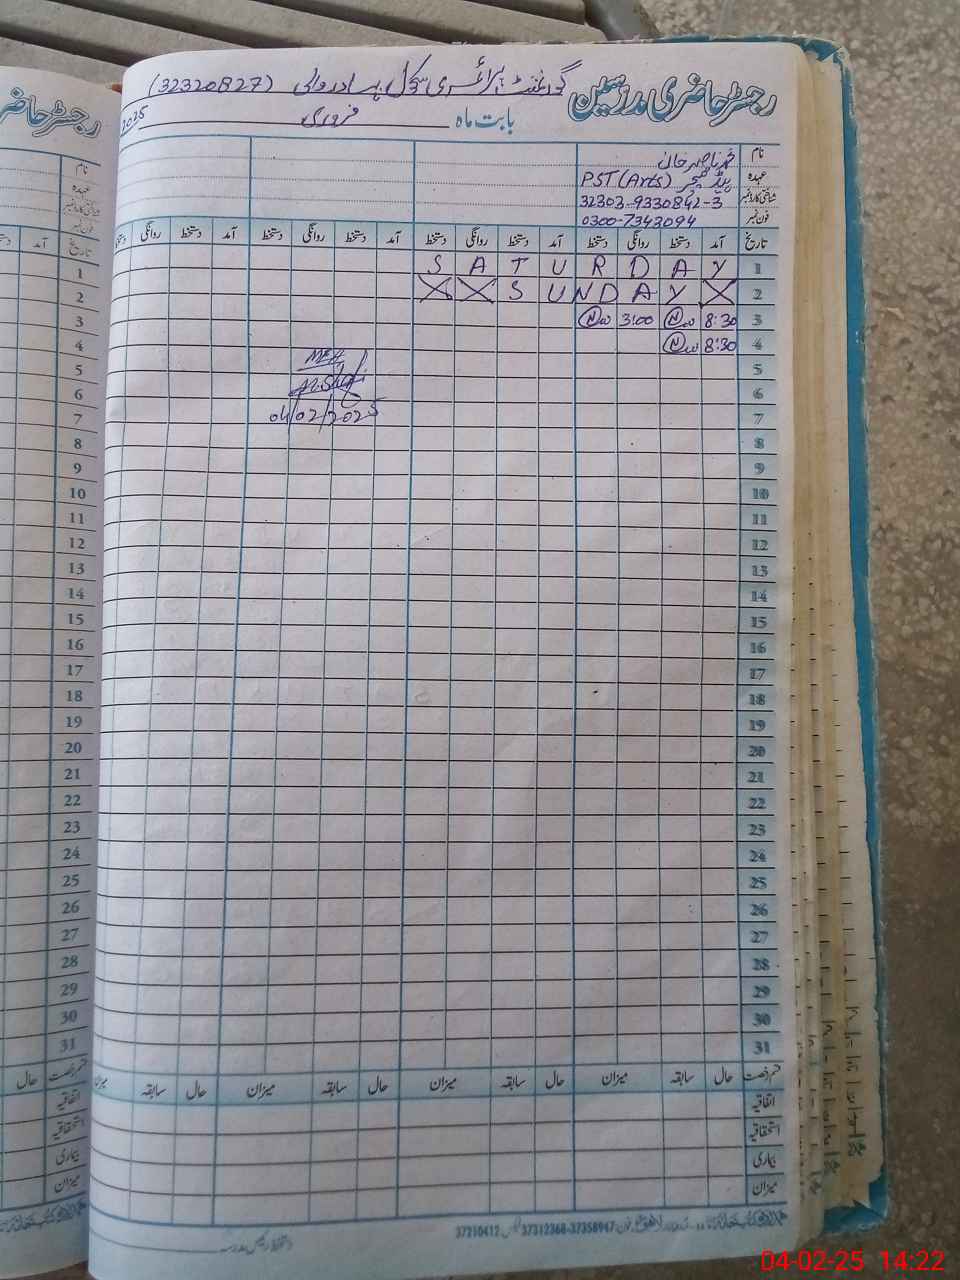 رجسٹر حاضری مدرسین گورنمنٹ پرائمری سکول (32320827)
بابت ماہ فروری 2025
نام محمد ناصر خان
عہدہ ہیڈ ٹیچر PST (Arts)
شناختی کارڈ نمبر 32303-9330842-3
فون نمبر 0300-7343094
تاریخ آمد دستخط روانگی دستخط آمد دستخط روانگی دستخط آمد دستخط روانگی دستخط آمد دستخط روانگی دستخط
1 S A T U R D A Y
2 S U N D A Y
3 8:30 3:00
4 8:30
5 MEA
6
7 04/02/2025
8
9
10
11
12
13
14
15
16
17
18
19
20
21
22
23
24
25
26
27
28
29
30
31
قسم رخصت حال سابقہ میزان حال سابقہ میزان حال سابقہ میزان حال سابقہ میزان
اتفاقیہ
استحقاقیہ
بیماری
میزان
37310412 37312368-37358947
دستخط رئیس مدرسہ
رجسٹر حاضری
نام
عہدہ
شناختی کارڈ نمبر
فون نمبر
تاریخ آمد دستخط
1
2
3
4
5
6
7
8
9
10
11
12
13
14
15
16
17
18
19
20
21
22
23
24
25
26
27
28
29
30
31
قسم رخصت حال
اتفاقیہ
استحقاقیہ
بیماری
میزان
04-02-25 14:22